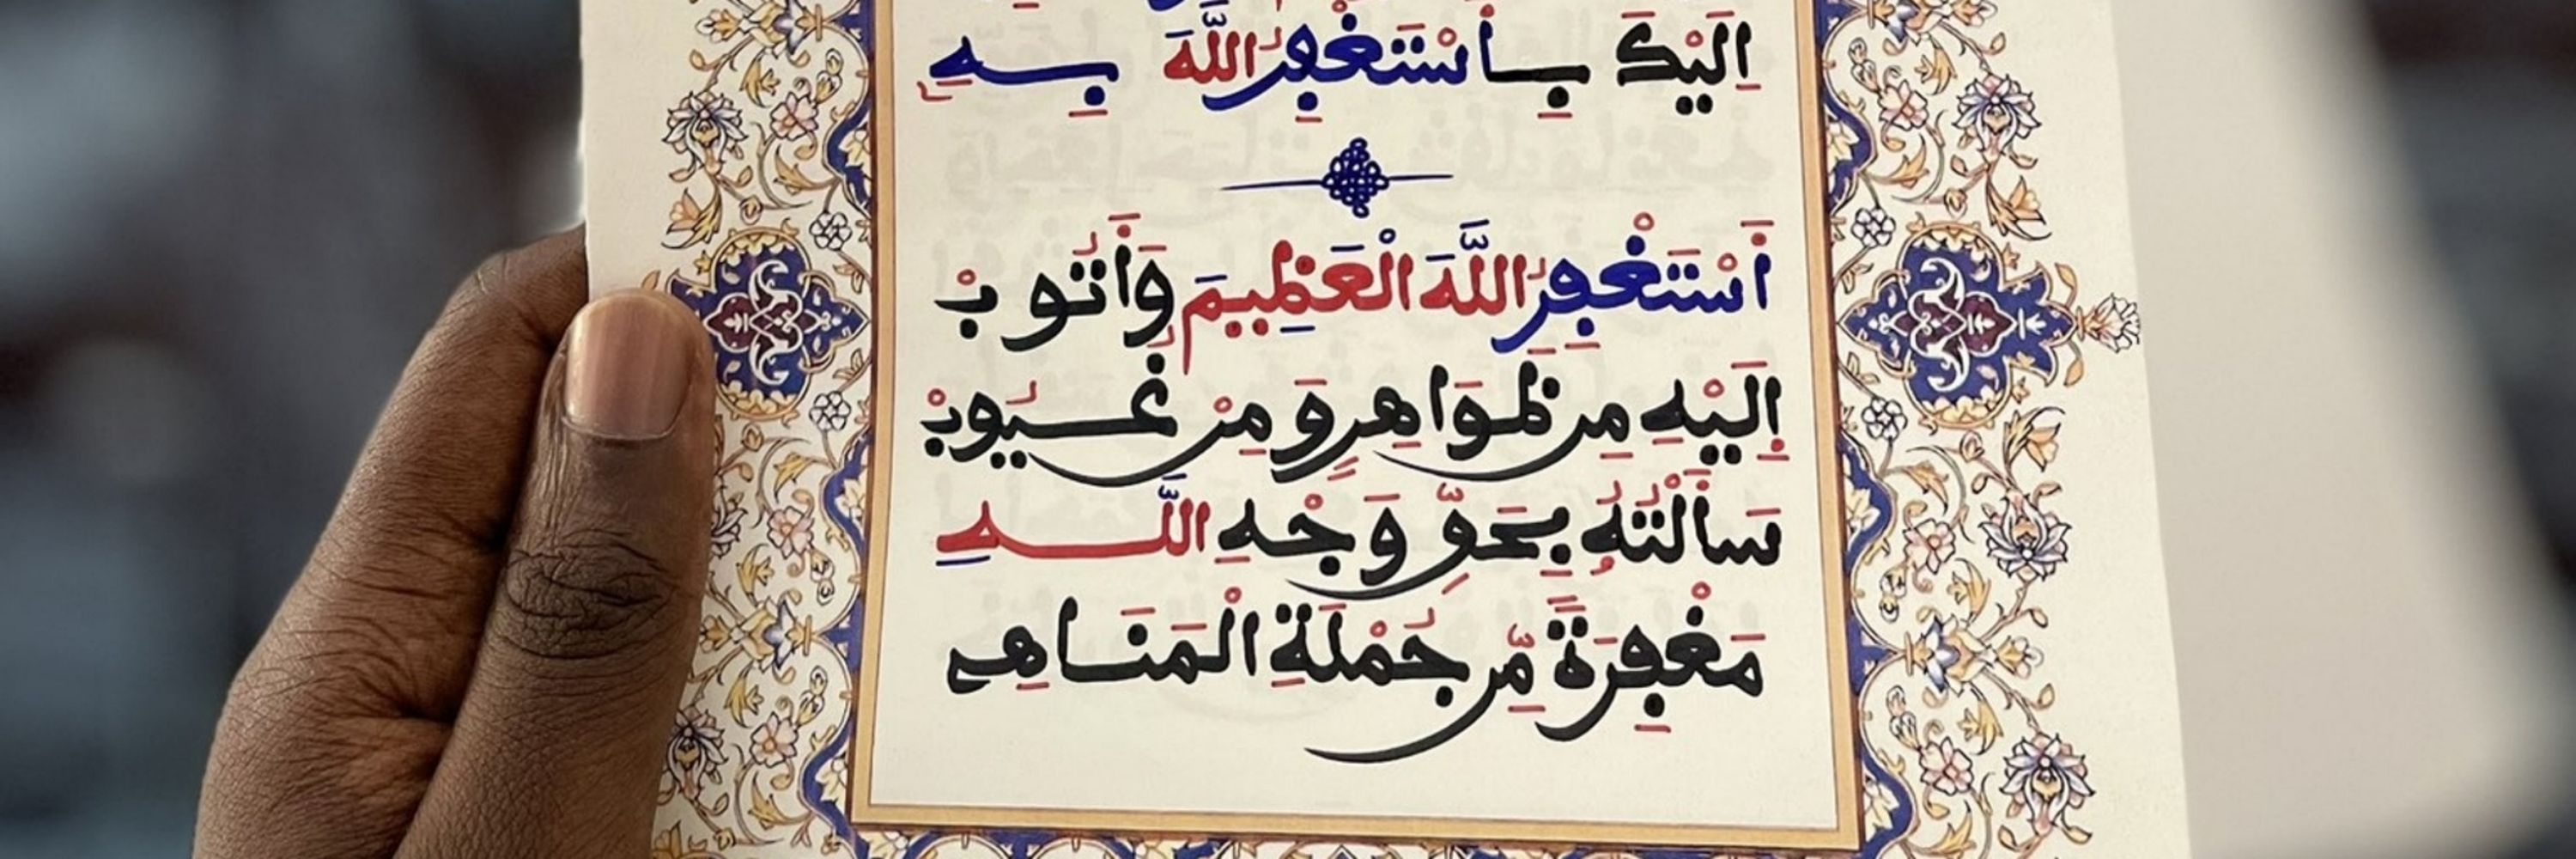 اِلَيْكَ بِأَسْتَغْفِرُ اللّٰهَ بِهِ
أَسْتَغْفِرُ اللّٰهَ الْعَظِيمَ وَأَتُوبُ
إِلَيْهِ مِن ظَوَاهِرِ وَمِنْ غُيُوبْ
سَأَلْتُهُ بِحَقِّ وَجْهِ اللّٰهِ
مَغْفِرَةً مِّن جُمْلَةِ الْمَنَاهِي